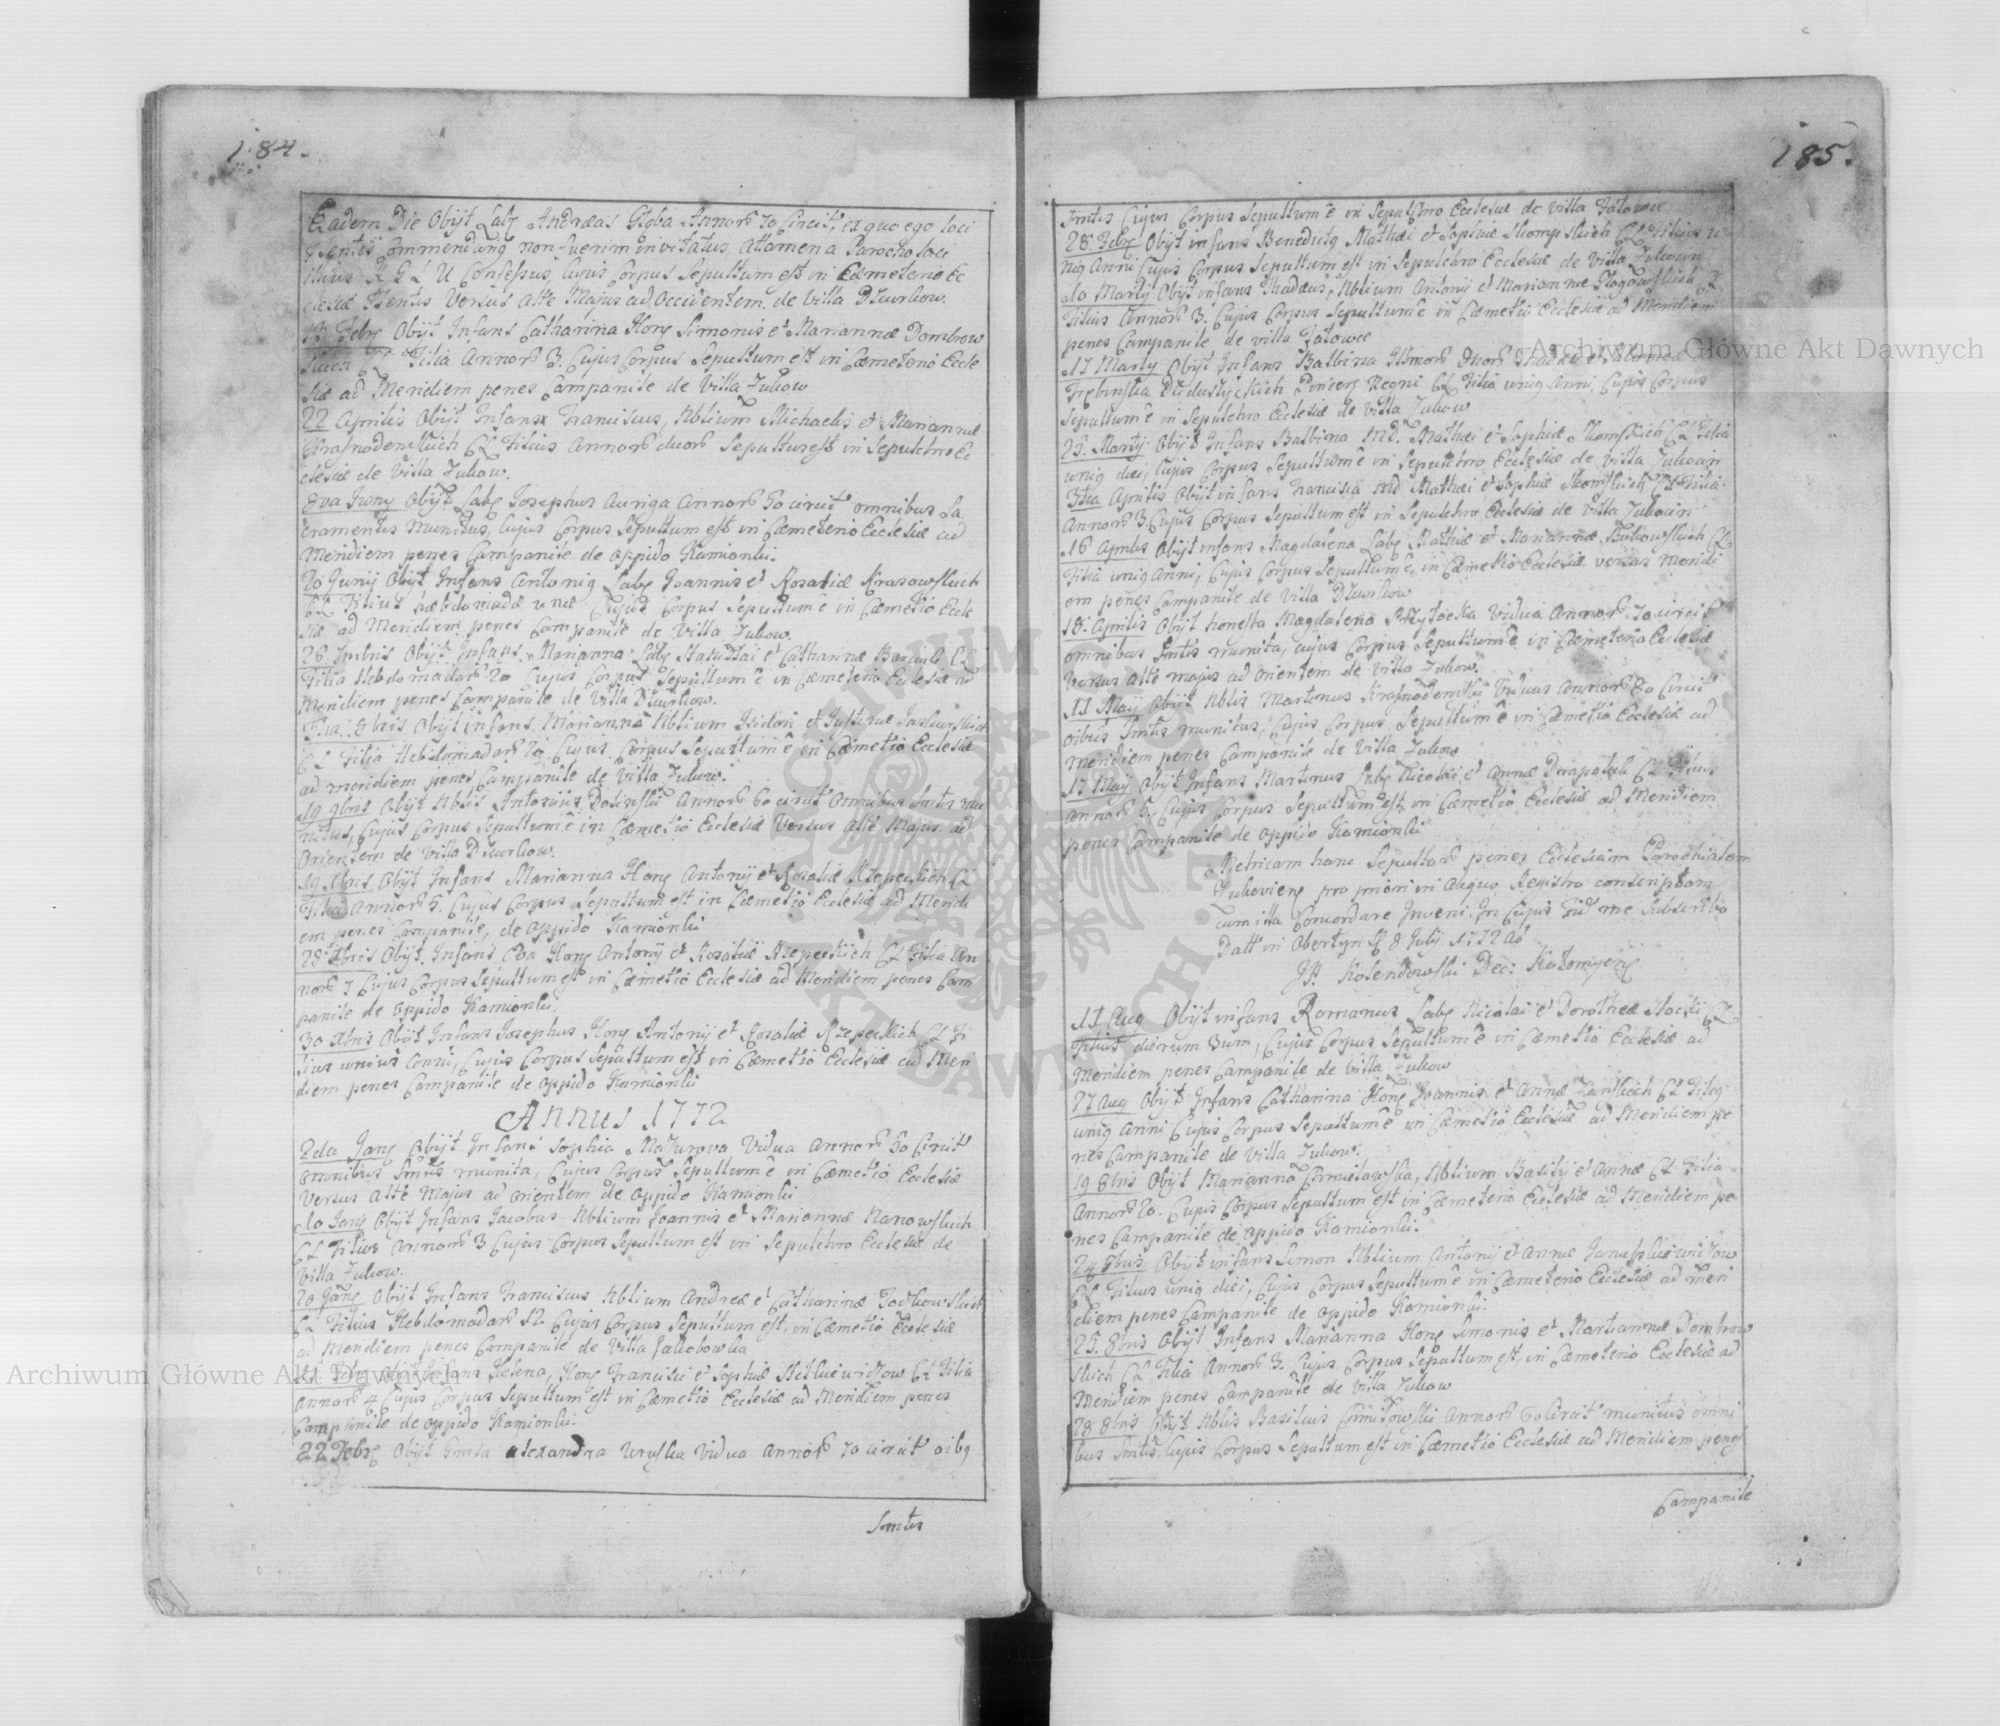 184.
Eadem Die Obijt Lab Andreas Gęba Annor 70 Circit, et quo ego loci
commendariq non fuerim invitatus, attamen a Parocho loci
ritus R G L U Confessus, Cujus Corpus Sepultum est in Cæmeterio Ec
clesiæ Versus Alte Majus ad Occidentem de Villa Dzurkow.
13 Febr Obijt Infans Catharina Hon Simonis et Mariannæ Dombrow
skich CL Filia Annor 3. Cujus Corpus Sepultum est in Cæmeterio Eccle
siæ ad Meridiem penes Campanile de Villa Zukow
22 Aprilis Obijt Infans Franciscus, Nbtium Michaelis et Mariannæ
Krasnodemskich CL Filius Annor duor Sepultus est in Sepulchro Ec
clesiæ de Villa Zukow.
8va Juny Obijt Lab Josephus Auriga Annor 50 circit omnibus Sa
cramentis munitus, Cujus Corpus Sepultum est in Cæmeterio Ecclesiæ ad
Meridiem penes Campanile de oppido Kamionki.
20 Junij Obijt Infans Antoniq Lab Joannis et Rosaliæ Krasowskich
CL Filius hæbdomadæ unæ Cujus Corpus Sepultum ê in Cæmetio Eccle
siæ ad Meridiem penes Campanile de Villa Zukow.
Obijt Infans Marianna Lab et Catharinæ CL
Filia Hebdomadar 20 Cujus Corpus Sepultum ê in Cæmeterio Ecclesiæ ad
Meridiem penes Campanile de Villa Dzurkow.
8bris Obijt infans Marianna Nbtium Isidori et Justinæ
CL Filia Hebdomadar 20 Cujus Corpus Sepultum ê in Cæmetio Ecclesiæ
ad meridiem penes Campanile de Villa Zukow.
19 9bris Obijt Nblis Antonius Annor 60 circit Omnibus Smtis mu
nitus, Cujus Corpus Sepultum ê in Cæmetio Ecclesiæ Versus Alte Majus ad
Orientem de Villa Dzurkow.
19 Xbris Obijt Infans Marianna Hon Antonij et Rosaliæ Rzepeckich CL
Filia Annor 5. Cujus Corpus Sepultum est in Cæmetio Ecclesiæ ad Meridi
em penes Campanile, de oppido Kamionki
28 Xbris Obijt Infans Eva Hon Antonij et Rosaliæ Rzepeckich CL Filia An
nor 7 Cujus Corpus Sepultum est in Cæmetio Ecclesiæ ad Meridiem penes Cam
panile de oppido Kamionki.
30 Xbris Obijt Infans Josephus Hon Antonij et Rosaliæ Rzepeckich CL Fi
lius unius Anni, Cujus Corpus Sepultum est in Cæmetio Ecclesiæ ad Meri
diem penes Campanile de oppido Kamionki
Annus 1772
2da Jan Obijt Infans Sophia Mazurova Vidua Annor 50 Circit
omnibus Smtis munita, Cujus Corpus Sepultum ê in Cæmetio Ecclesiæ
Versus Alte Majus ad orientem de oppido Kamionki
10 Jan Obijt Infans Jacobus Nbtium Joannis et Mariannæ Nanowskich
CL Filius Annor 3 Cujus Corpus Sepultum est in Sepulchro Ecclesiæ de
Villa Zukow.
20 Jan Obijt Infans Franciscus Nbtium Andreæ et Catharinæ
CL Filius Hebdomadar 12 Cujus Corpus Sepultum est in Cæmetio Ecclesiæ
ad Meridiem penes Campanile de Villa Jakobowka
Febr Obijt Infans Helena, Hon Francisci et Sophiæ CL Filia
Annor 4 Cujus Corpus Sepultum est in Cæmetio Ecclesiæ ad Meridiem penes
Campanile de oppido Kamionki.
22 Febr Obijt Alexandra Uruska Vidua Annor 70 circit oibq
Smtis
185.
Smtis Cujus Corpus Sepultum ê in Sepulchro Ecclesiæ de Villa Fatowce
28 Febr Obijt infans Benedictq Mathæi et Sophiæ CL Filius u
niq Anni Cujus Corpus Sepultum est in Sepulchro Ecclesiæ de Villa Zukocin
10 Martij Obijt infans Thadæus, Nbtium Antonij et Mariannæ CL
Filius Annor 3. Cujus Corpus Sepultum ê in Cæmetio Ecclesiæ ad Meridiem
penes Campanile de villa Fatowce
17 Martij Obijt Infans Balbina
CL Filia uniq Anni, Cujus Corpus
Sepultum ê in Sepulchro Ecclesiæ de Villa Zukow
25. Martij Obijt Infans Balbina MD. Mathæi et Sophiæ CL Filia
uniq diei, Cujus Corpus Sepultum ê in Sepulchro Ecclesiæ de Villa Zukocin
3tia Aprilis Obijt infans Francisca MD Mathæi et Sophiæ CL Filia
Annor 3 Cujus Corpus Sepultum est in Sepulchro Ecclesiæ de Villa Zukocin
16 Aprilis Obijt infans Magdalena Lab Mathiæ et Mariannæ CL
Filia uniq anni, Cujus Corpus Sepultum ê, in Cæmetio Ecclesiæ versus meridi
em penes Campanile de Villa Dzurkow
18. Aprilis Obijt honesta Magdalena Vidua Annor 70 circit
omnibus Smtis munita, cujus Corpus Sepultum ê in Cæmeterio Ecclesiæ
Versus Alte majus ad Orientem de Villa Zukow
11 Maij Obijt Nblis Martinus Krasnodemski Viduus Annor 80 Circit
oibus Smtis munitus, Cujus Corpus Sepultum ê in Cæmetio Ecclesiæ ad
meridiem penes Campanile de Villa Zukow
17 Maij Obijt Infans Martinus Lab Nicolai et Annæ CL Filius
Annor 5, Cujus Corpus Sepultum est, in Cæmetio Ecclesiæ ad Meridiem
penes Campanile de oppido Kamionki
Metricam hanc Sepultor penes Ecclesiam Parochialem
Zukoviens pro priori in Registro conscriptam
cum illa Concordare Inveni. In Cujus Fid me Subscribo
Datt in Obertyn 8 Julij 1772 Ao
JP Kolendowski Dec: Kolomyens
17 Aug Obijt infans Romanus Lab Nicolai et Dorotheæ CL
Filius dierum 3um, Cujus Corpus Sepultum ê in Cæmetio Ecclesiæ ad
Meridiem penes Campanile de Villa Zukow
27 Aug Obijt Infans Catharina Hon Joannis et Annæ CL Filiq
uniq Anni Cujus Corpus Sepultum ê in Cæmetio Ecclesiæ ad Meridiem pe
nes Campanile de Villa Zukow.
19 8bris Obijt Marianna Nbtium Basilij et Annæ CL Filia
Annor 20. Cujus Corpus Sepultum est in Cæmeterio Ecclesiæ ad Meridiem pe
nes Campanile de oppido Kamionki.
24 8bris Obijt infans Simon Nbtium Antonij et Annæ
CL Filius uniq diei, Cujus Corpus Sepultum ê in Cæmetio Ecclesiæ ad Meri
diem penes Campanile de oppido Kamionki.
25. 8bris Obijt Infans Marianna Hon Simonis et Mariannæ Dombrow
skich CL Filia Annor 3. Cujus Corpus Sepultum est, in Cæmeterio Ecclesiæ ad
Meridiem penes Campanile de Villa Zukow
28 8bris Obijt Nblis Basilius Annor 60 Circit munitus omni
bus Smtis, Cujus Corpus Sepultum est in Cæmetio Ecclesiæ ad Meridiem penes
Campanile
Archiwum Główne Akt Dawnych
Archiwum Główne Akt Dawnych